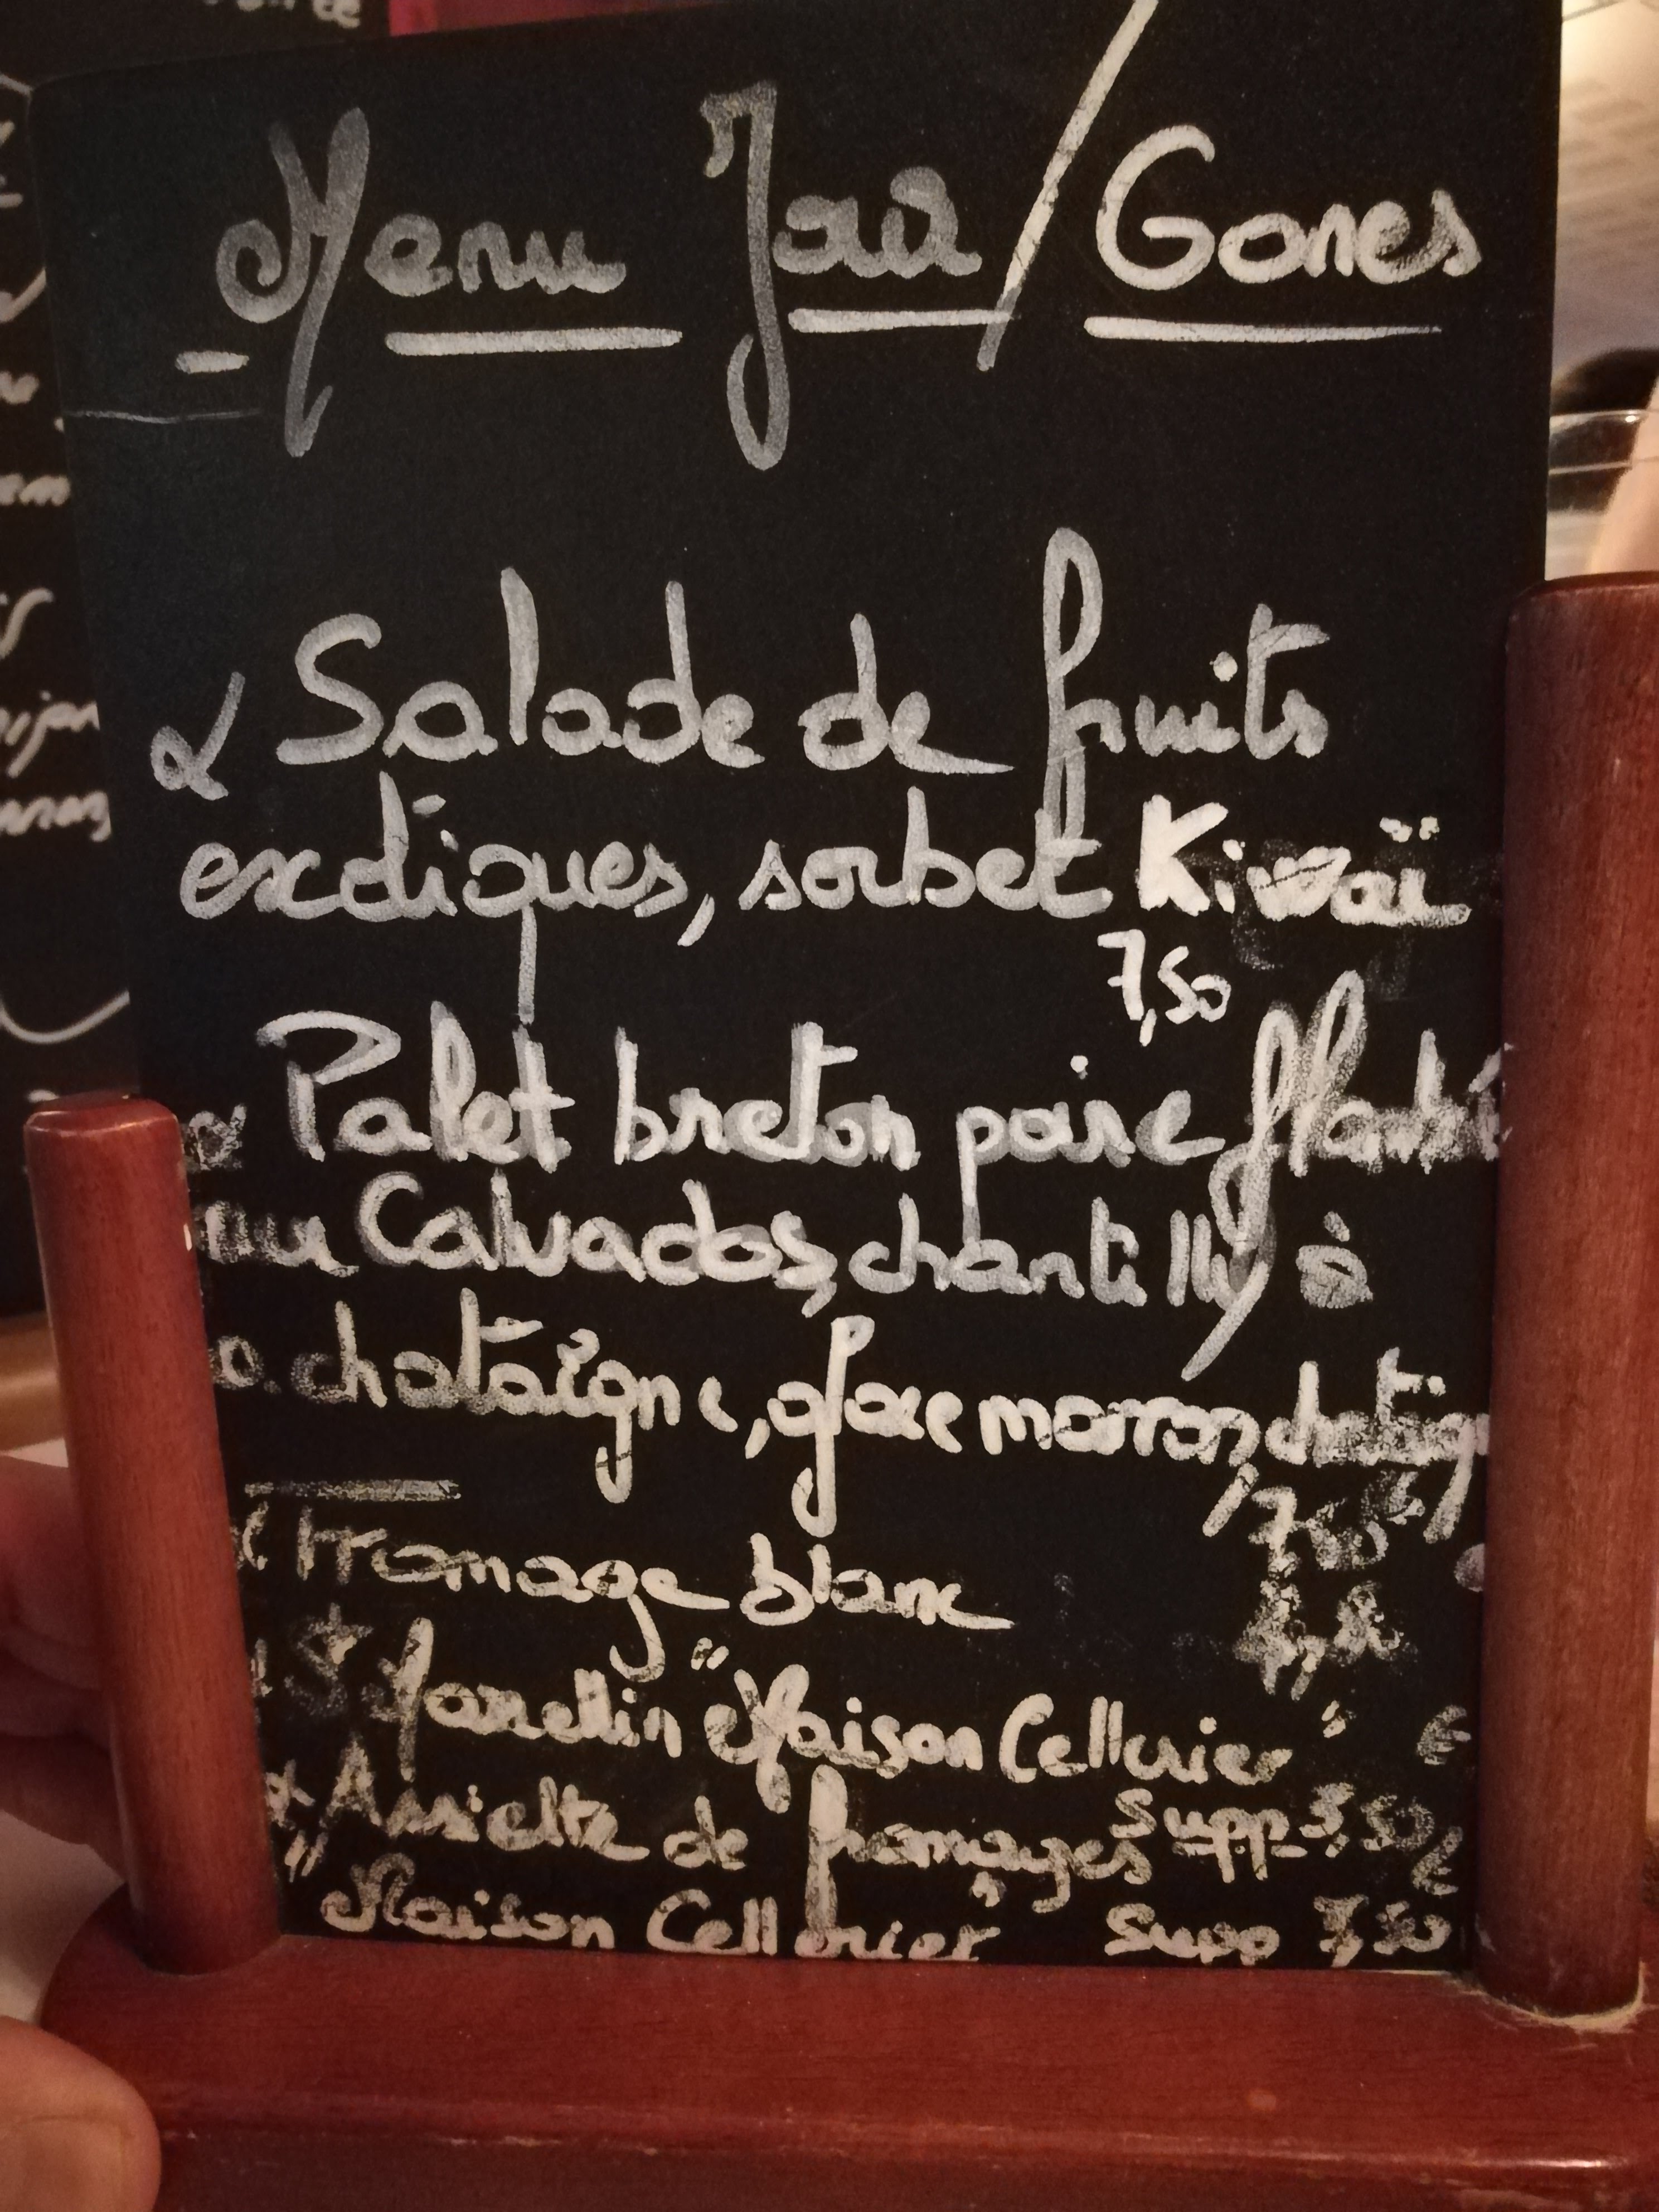 Menu Jour/Gones
Salade de fruits
exotiques, sorbet Kiwaï
7,50
Palet breton poire flambée
au Calvados, chantilly à
la chataîgne, glace marron, chataigne
7,50
Fromage blanc
St Marcellin "Maison Cellerier"
Assiette de fromages supp 3,50 €
"Maison Cellerier" Supp 7,50